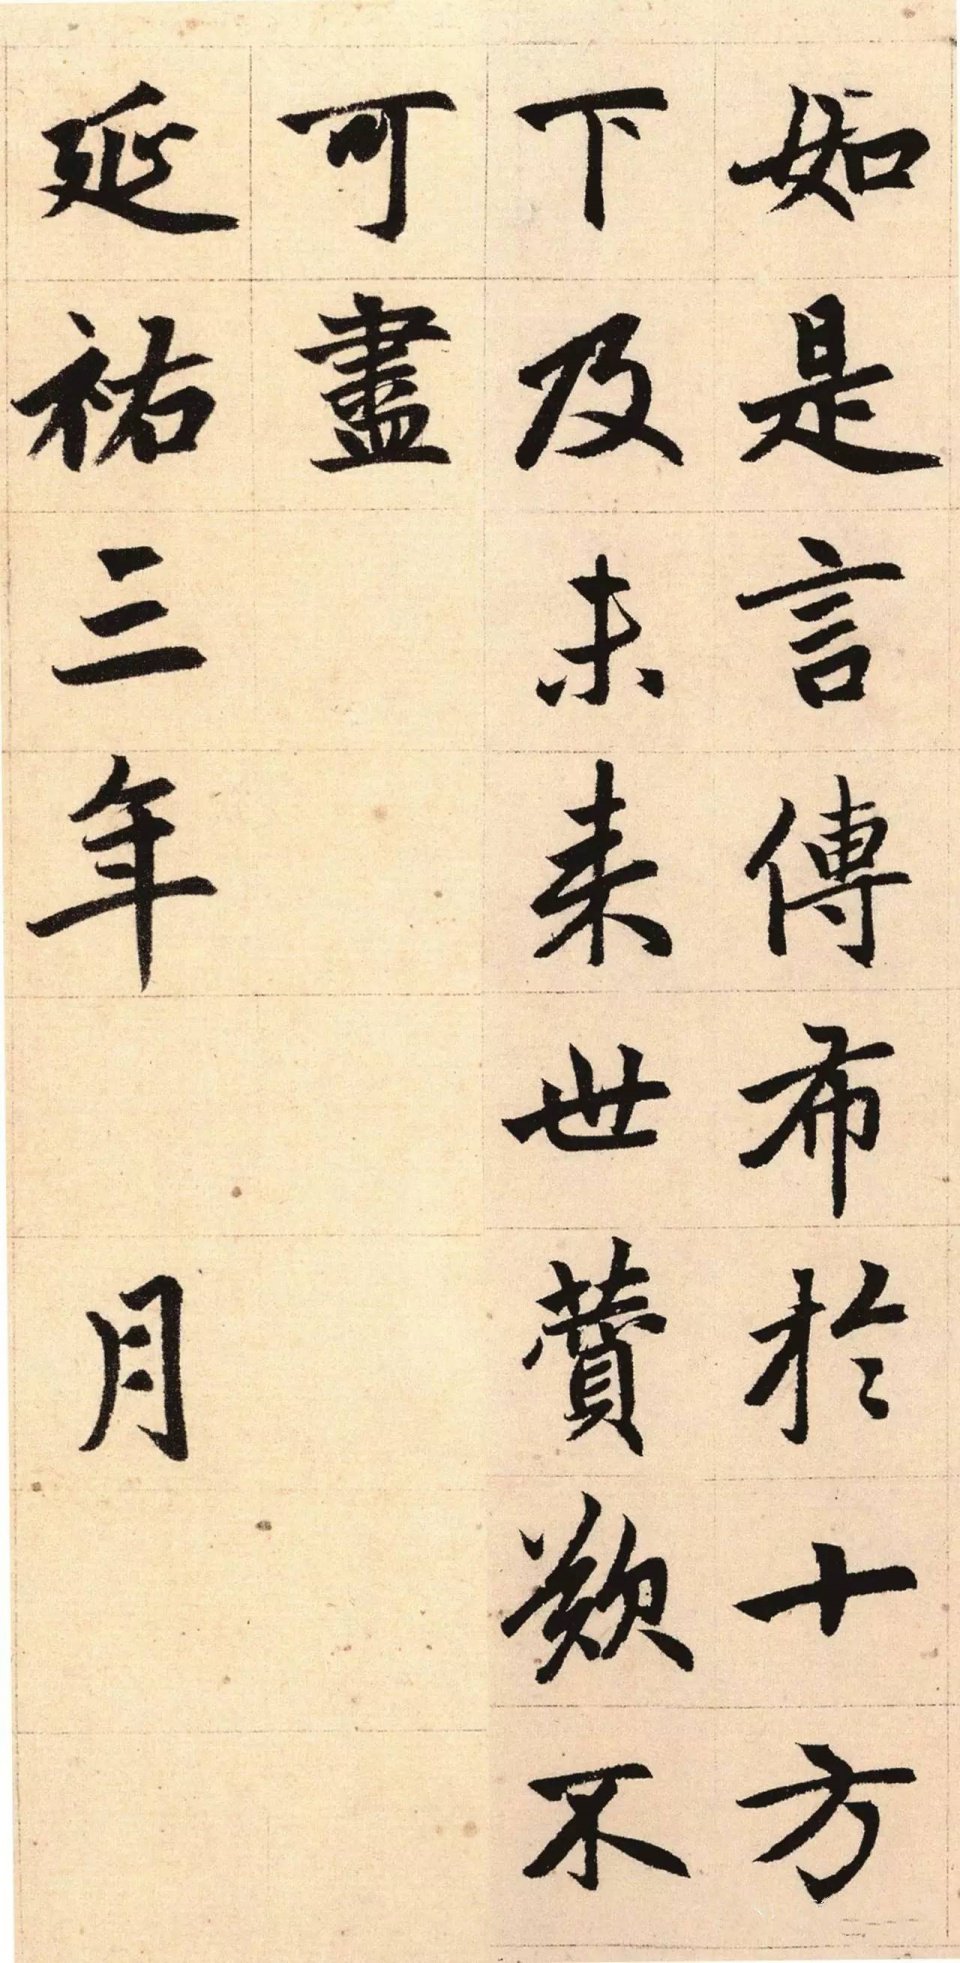 如是言傳布於十方
下及未来世贊歎不
可盡
延祐三年 月